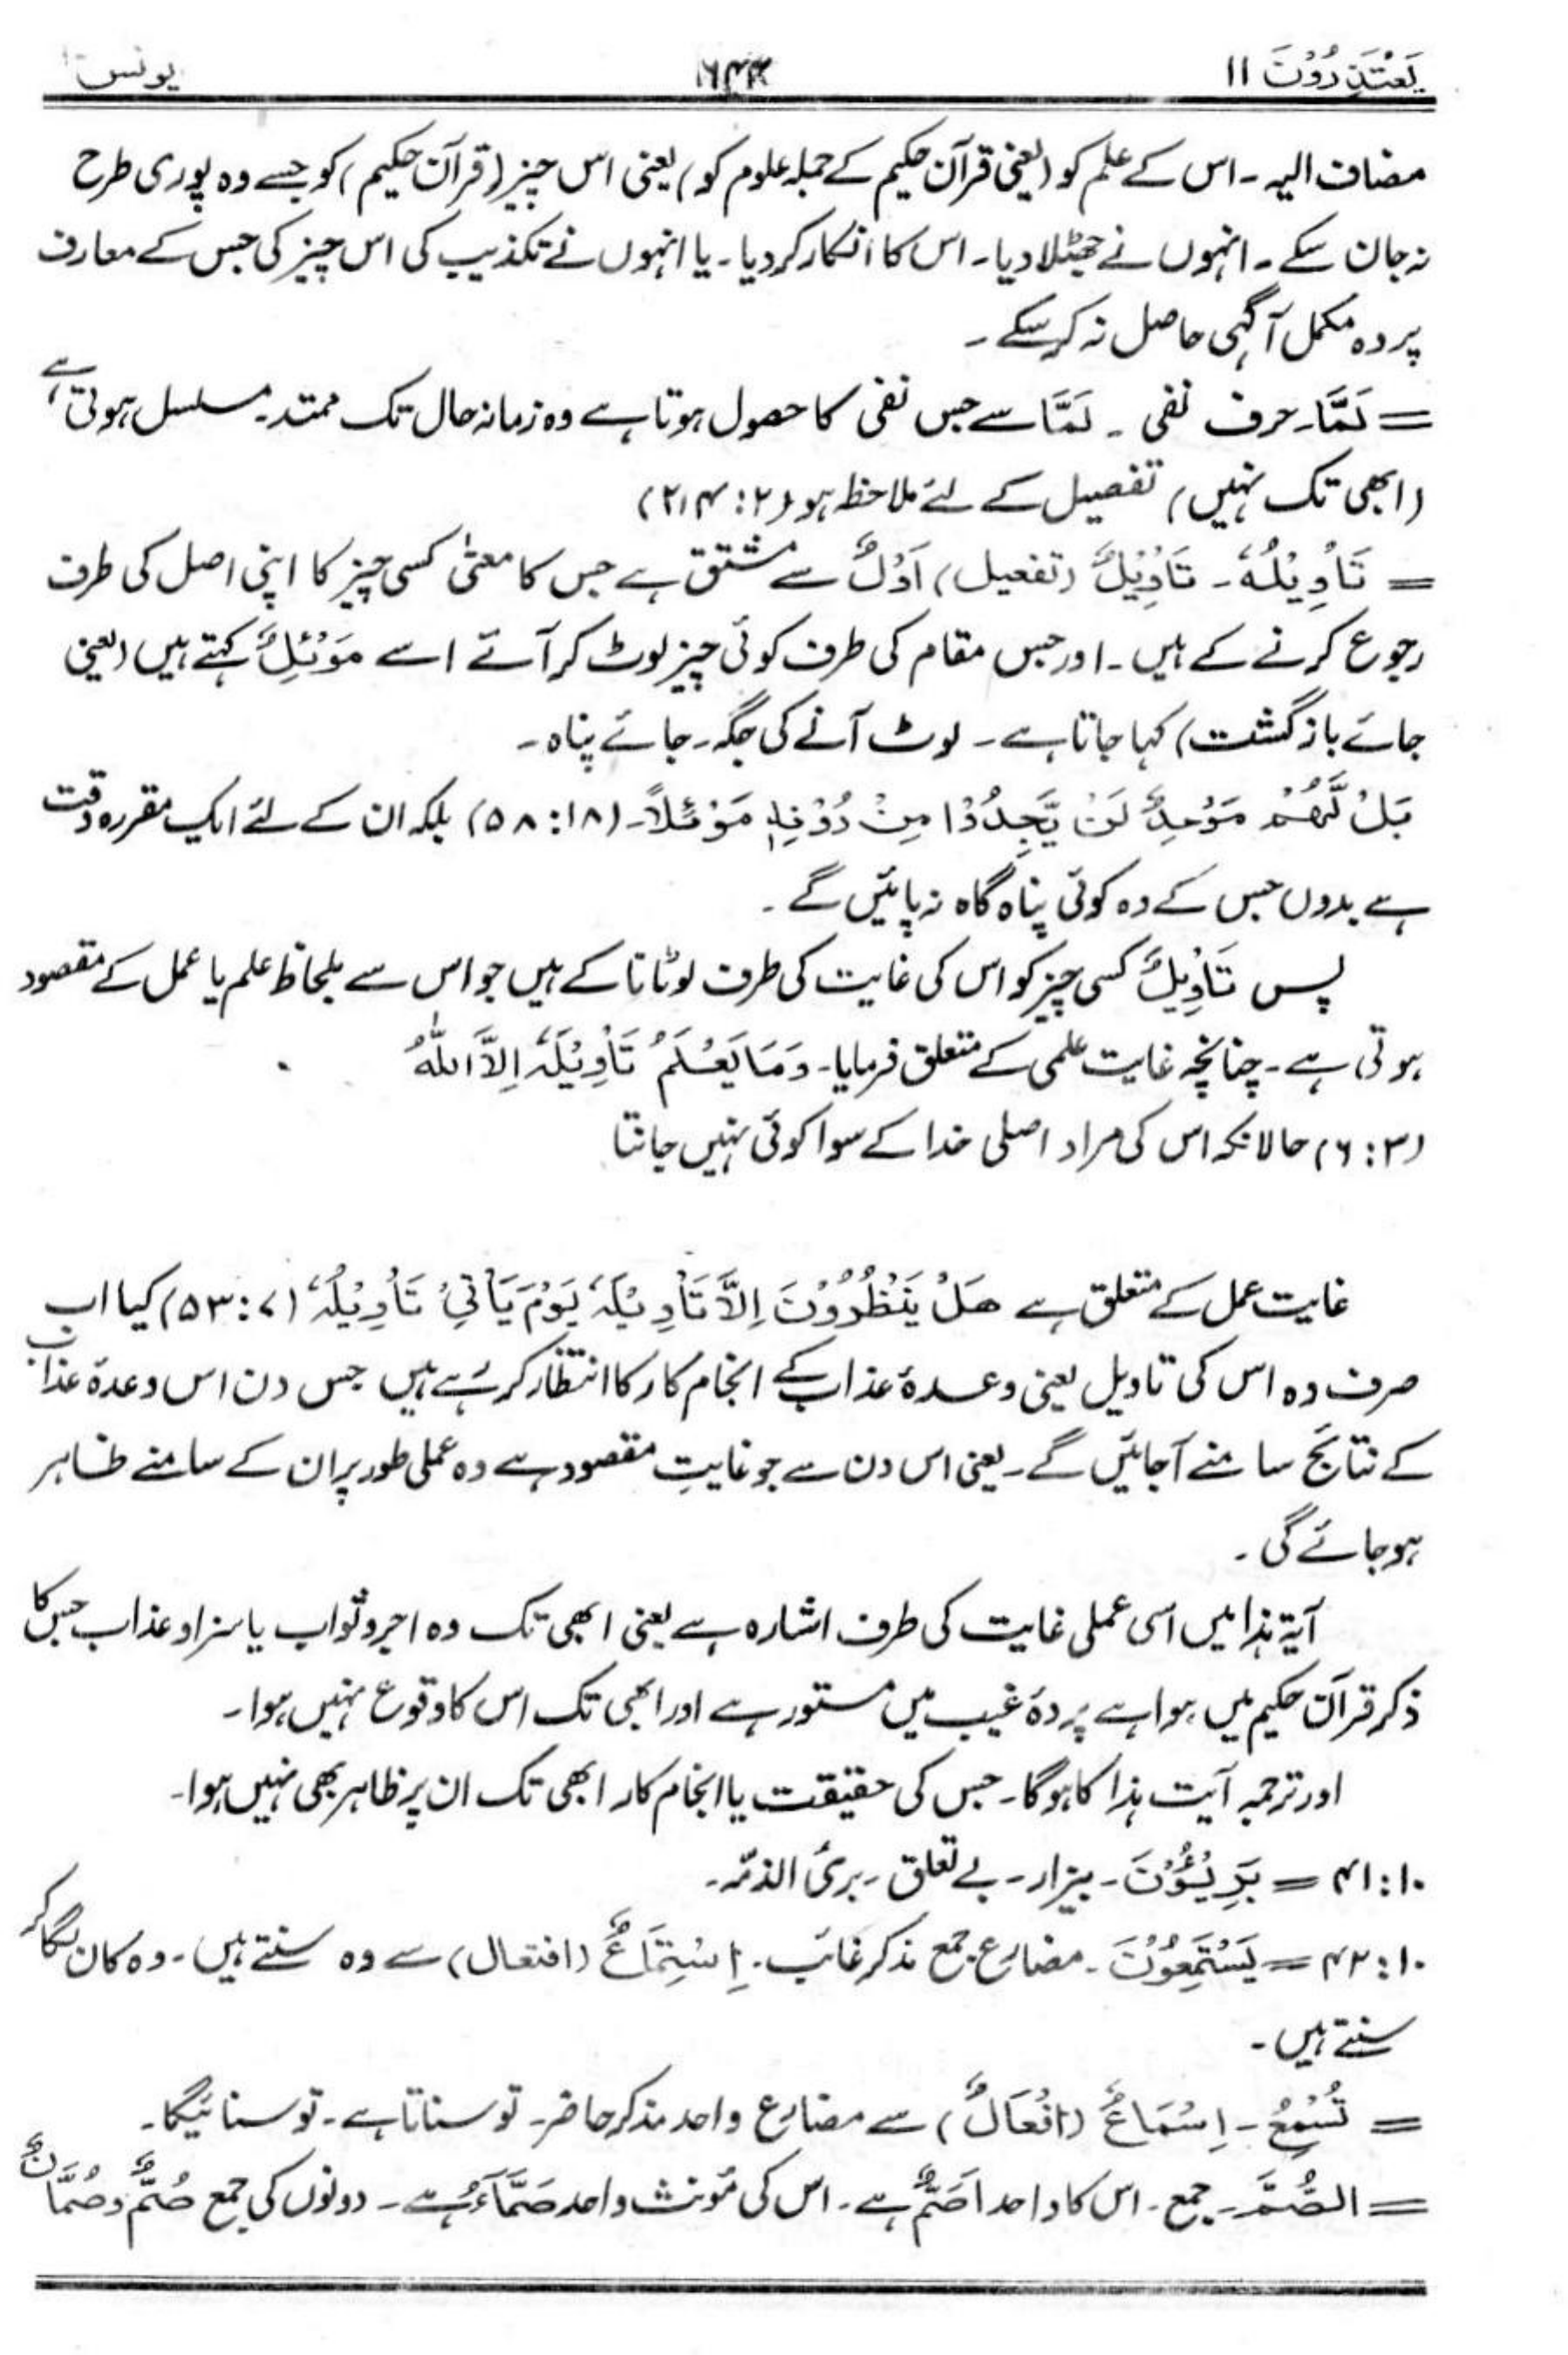 یَعْتَذِرُوْنَ ١١
یونس
مضاف الیہ ۔ اس کے علم کو (یعنی قرآن حکیم کے جملہ علوم کو) یعنی اس چیز (قرآن حکیم) کو جسے وہ پوری طرح
نہ جان سکے ۔ انہوں نے جھٹلا دیا ۔ اس کا انکار کر دیا ۔ یا انہوں نے تکذیب کی اس چیز کی جس کے معارف
پر وہ مکمل آگہی حاصل نہ کر سکے ۔
= لَمَّا ۔ حرف نفی ۔ لَمَّا سے جس نفی کا حصول ہوتا ہے وہ زمانہ حال تک ممتد ۔ مسلسل ہوتی ہے
(ابھی تک نہیں) تفصیل کے لئے ملاحظہ ہو (٢: ٢١٤)
= تَأْوِیْلُہٗ ۔ تَأْوِیْلٌ (تفعیل) اَوْلٌ سے مشتق ہے جس کا معنیٰ کسی چیز کا اپنی اصل کی طرف
رجوع کرنے کے ہیں ۔ اور جس مقام کی طرف کوئی چیز لوٹ کر آئے اسے مَوْئِلٌ کہتے ہیں (یعنی
جائے بازگشت) کہا جاتا ہے ۔ لوٹ آنے کی جگہ ۔ جائے پناہ ۔
بَلْ لَّھُمْ مَوْعِدٌ لَنْ یَّجِدُوْا مِنْ دُوْنِہٖ مَوْئِلًا ۔ (١٨: ٥٨) بلکہ ان کے لئے ایک مقررہ وقت
ہے بدوں جس کے وہ کوئی پناہ گاہ نہ پائیں گے ۔
پس تَأْوِیْلٌ کسی چیز کو اس کی غایت کی طرف لوٹانا کے ہیں جو اس سے بلحاظ علم یا عمل کے مقصود
ہوتی ہے ۔ چنانچہ غایت علمی کے متعلق فرمایا ۔ وَمَا یَعْلَمُ تَأْوِیْلَہٗ اِلاَّ اللّٰہُ
(٣: ٦) حالانکہ اس کی مراد اصلی خدا کے سوا کوئی نہیں جانتا
غایت عمل کے متعلق ہے ھَلْ یَنْظُرُوْنَ اِلاَّ تَأْوِیْلَہٗ یَوْمَ یَأْتِیْ تَأْوِیْلُہٗ (٧: ٥٣) کیا اب
صرف وہ اس کی تاویل یعنی وعدۂ عذاب کے انجام کار کا انتظار کر رہے ہیں جس دن اس وعدۂ عذاب
کے نتائج سامنے آجائیں گے ۔ یعنی اس دن سے جو غایتِ مقصود ہے وہ عملی طور پر ان کے سامنے ظاہر
ہو جائے گی ۔
آیۃ ہذا میں اسی عملی غایت کی طرف اشارہ ہے یعنی ابھی تک وہ اجر و ثواب یا سزا و عذاب جس کا
ذکر قرآن حکیم میں ہوا ہے پردۂ غیب میں مستور ہے اور ابھی تک اس کا وقوع نہیں ہوا ۔
اور ترجمہ آیت ہذا کا ہوگا ۔ جس کی حقیقت یا انجام کار ابھی تک ان پر ظاہر بھی نہیں ہوا ۔
١٠: ٤١ = بَرِیْئُوْنَ ۔ بیزار ۔ بے تعلق ۔ بریُ الذمّہ ۔
١٠: ٤٢ = یَسْتَمِعُوْنَ ۔ مضارع جمع مذکر غائب ۔ اِسْتِمَاعٌ (افتعال) سے وہ سنتے ہیں ۔ وہ کان لگا کر
سنتے ہیں ۔
= تُسْمِعُ ۔ اِسْمَاعٌ (اِفْعَالٌ) سے مضارع واحد مذکر حاضر ۔ تو سناتا ہے ۔ تو سنائیگا ۔
= الصُّمَّ ۔ جمع ۔ اس کا واحد اَصَمُّ ہے ۔ اس کی مؤنث واحد صَمَّاءُ ہے ۔ دونوں کی جمع صُمٌّ و صُمَّانٌ